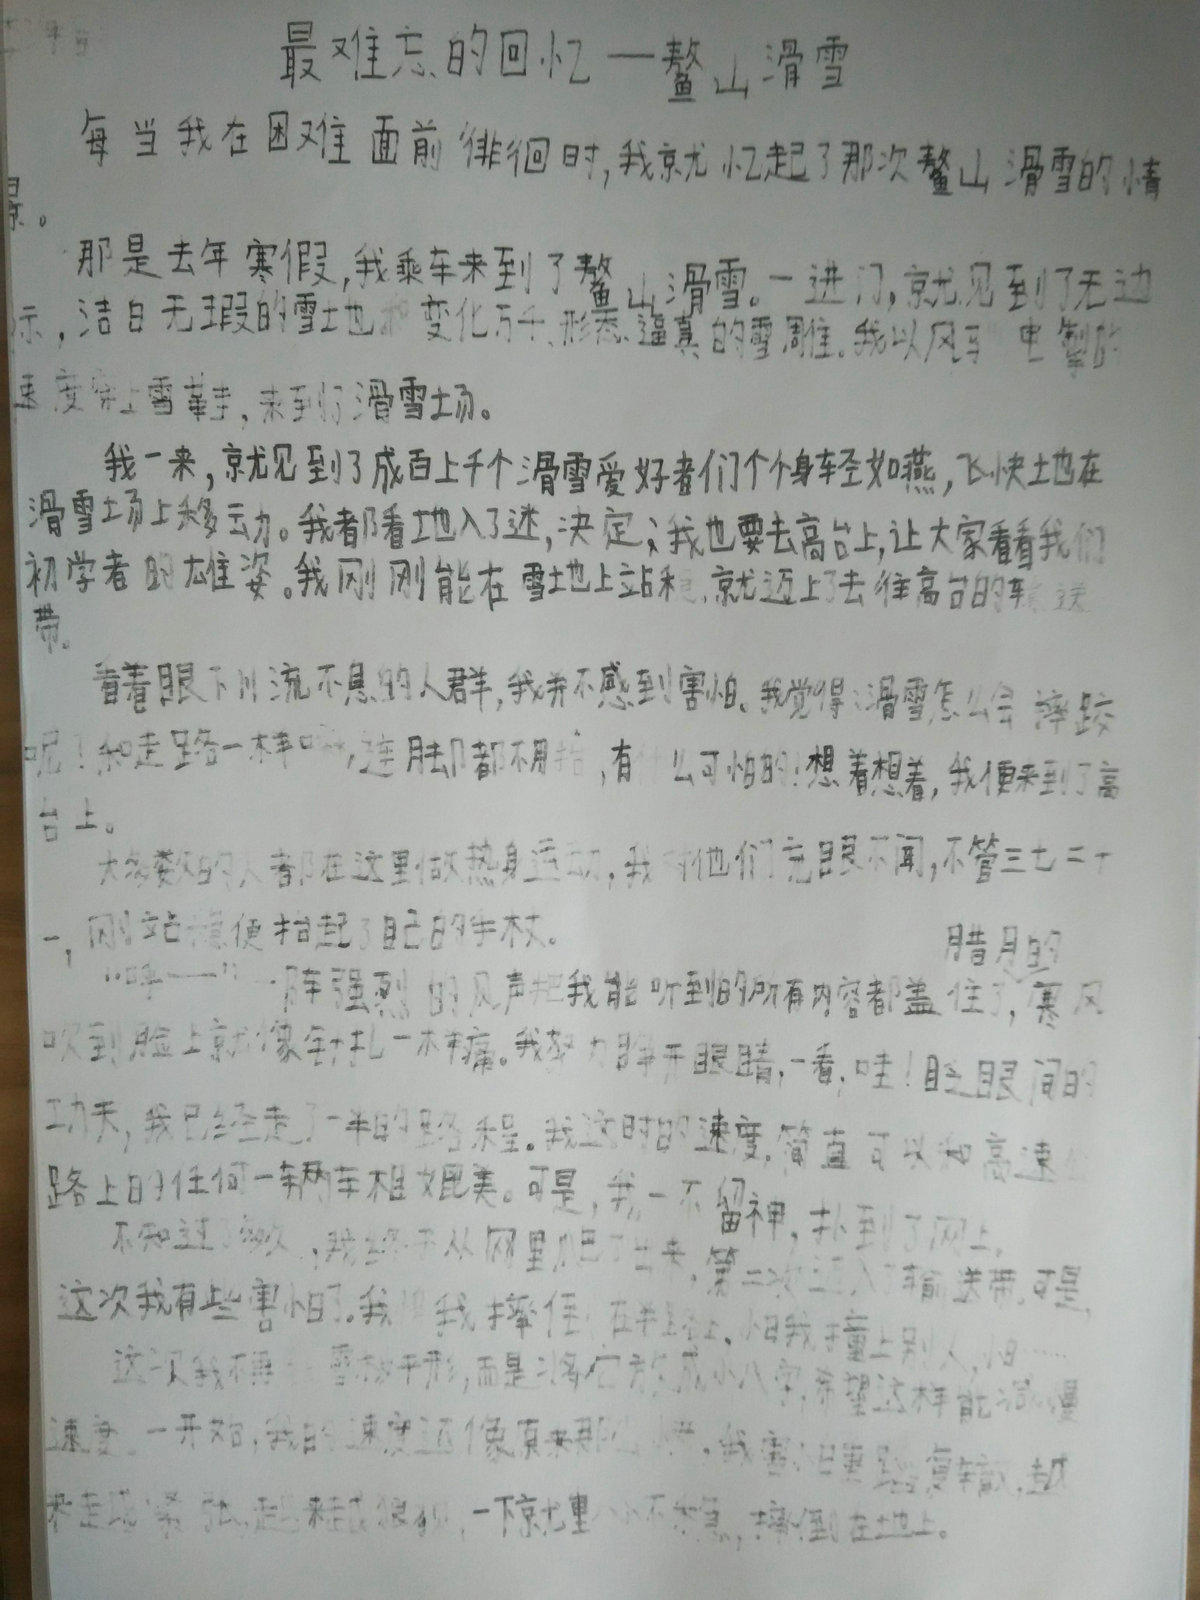 最难忘的回忆一鳌山滑雪
每当我在困难面前徘徊时,我就忆起了那次鳌山滑雪的情
景。
那是去年寒假,我乘车来到了鳌山滑雪。一进门,就见到了无边
际,洁白无瑕的雪地和变化万千、形态逼真的雪雕。我以风驰电掣的
速度穿上雪鞋,来到了滑雪场。
我一来,就见到了成百上千个滑雪爱好者们个个身轻如燕,飞快地在
滑雪场上移动。我都看地入了迷,决定;我也要去高台上,让大家看看我们
初学者的雄姿。我刚刚能在雪地上站稳,就迈上了去往高台的输送
带。
看着眼下川流不息的人群,我并不感到害怕。我觉得:滑雪怎么会摔跤
呢!和走路一样,连脚都不用抬,有什么可怕的!想着想着,我便来到了高
台上。
大多数的人都在这里做热身运动,我对他们充眼不闻,不管三七二十
一,刚站稳便抬起了自己的手杖。
腊月的
“呼——”一阵强烈的风声把我能听到的所有内容都盖住了,寒风
吹到脸上就像针扎一样痛。我努力睁开眼睛,一看,哇!眨眼间的
功夫,我已经走了一半的路程。我这时的速度,简直可以和高速公
路上的任何一辆车相媲美。可是,我一不留神,扑到了网上。
不知过了多久,我终于从网里爬了出来,第二次迈入了输送带,可是,
这次我有些害怕了。我怕我摔在半路上,怕我撞上别人,怕……
这次我不再 雪 平形,而是将它方成小八字,希望这样能减慢
速度。一开始,我的速度还像原来那么慢,我害怕重蹈覆辙,越
来越紧张,越来越 ,一下就重心不稳,摔倒在地上。